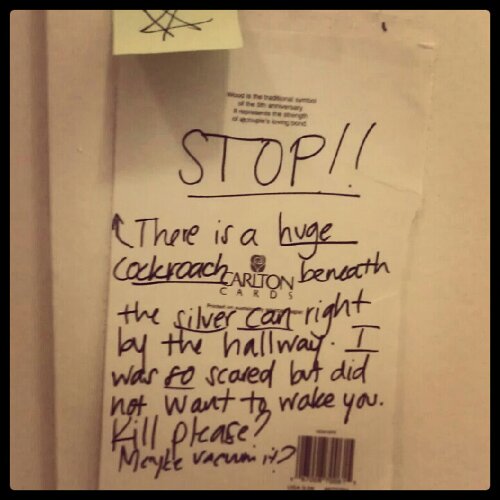 Wood is the traditional symbol
of the 5th anniversary
it represents the strength
of a couple's loving bond
STOP!!
There is a huge
Cockroach beneath
CARLTON
CARDS
the silver can right
by the hallway. I
was so scared but did
not want to wake you.
Kill please?
Maybe vacuum it?